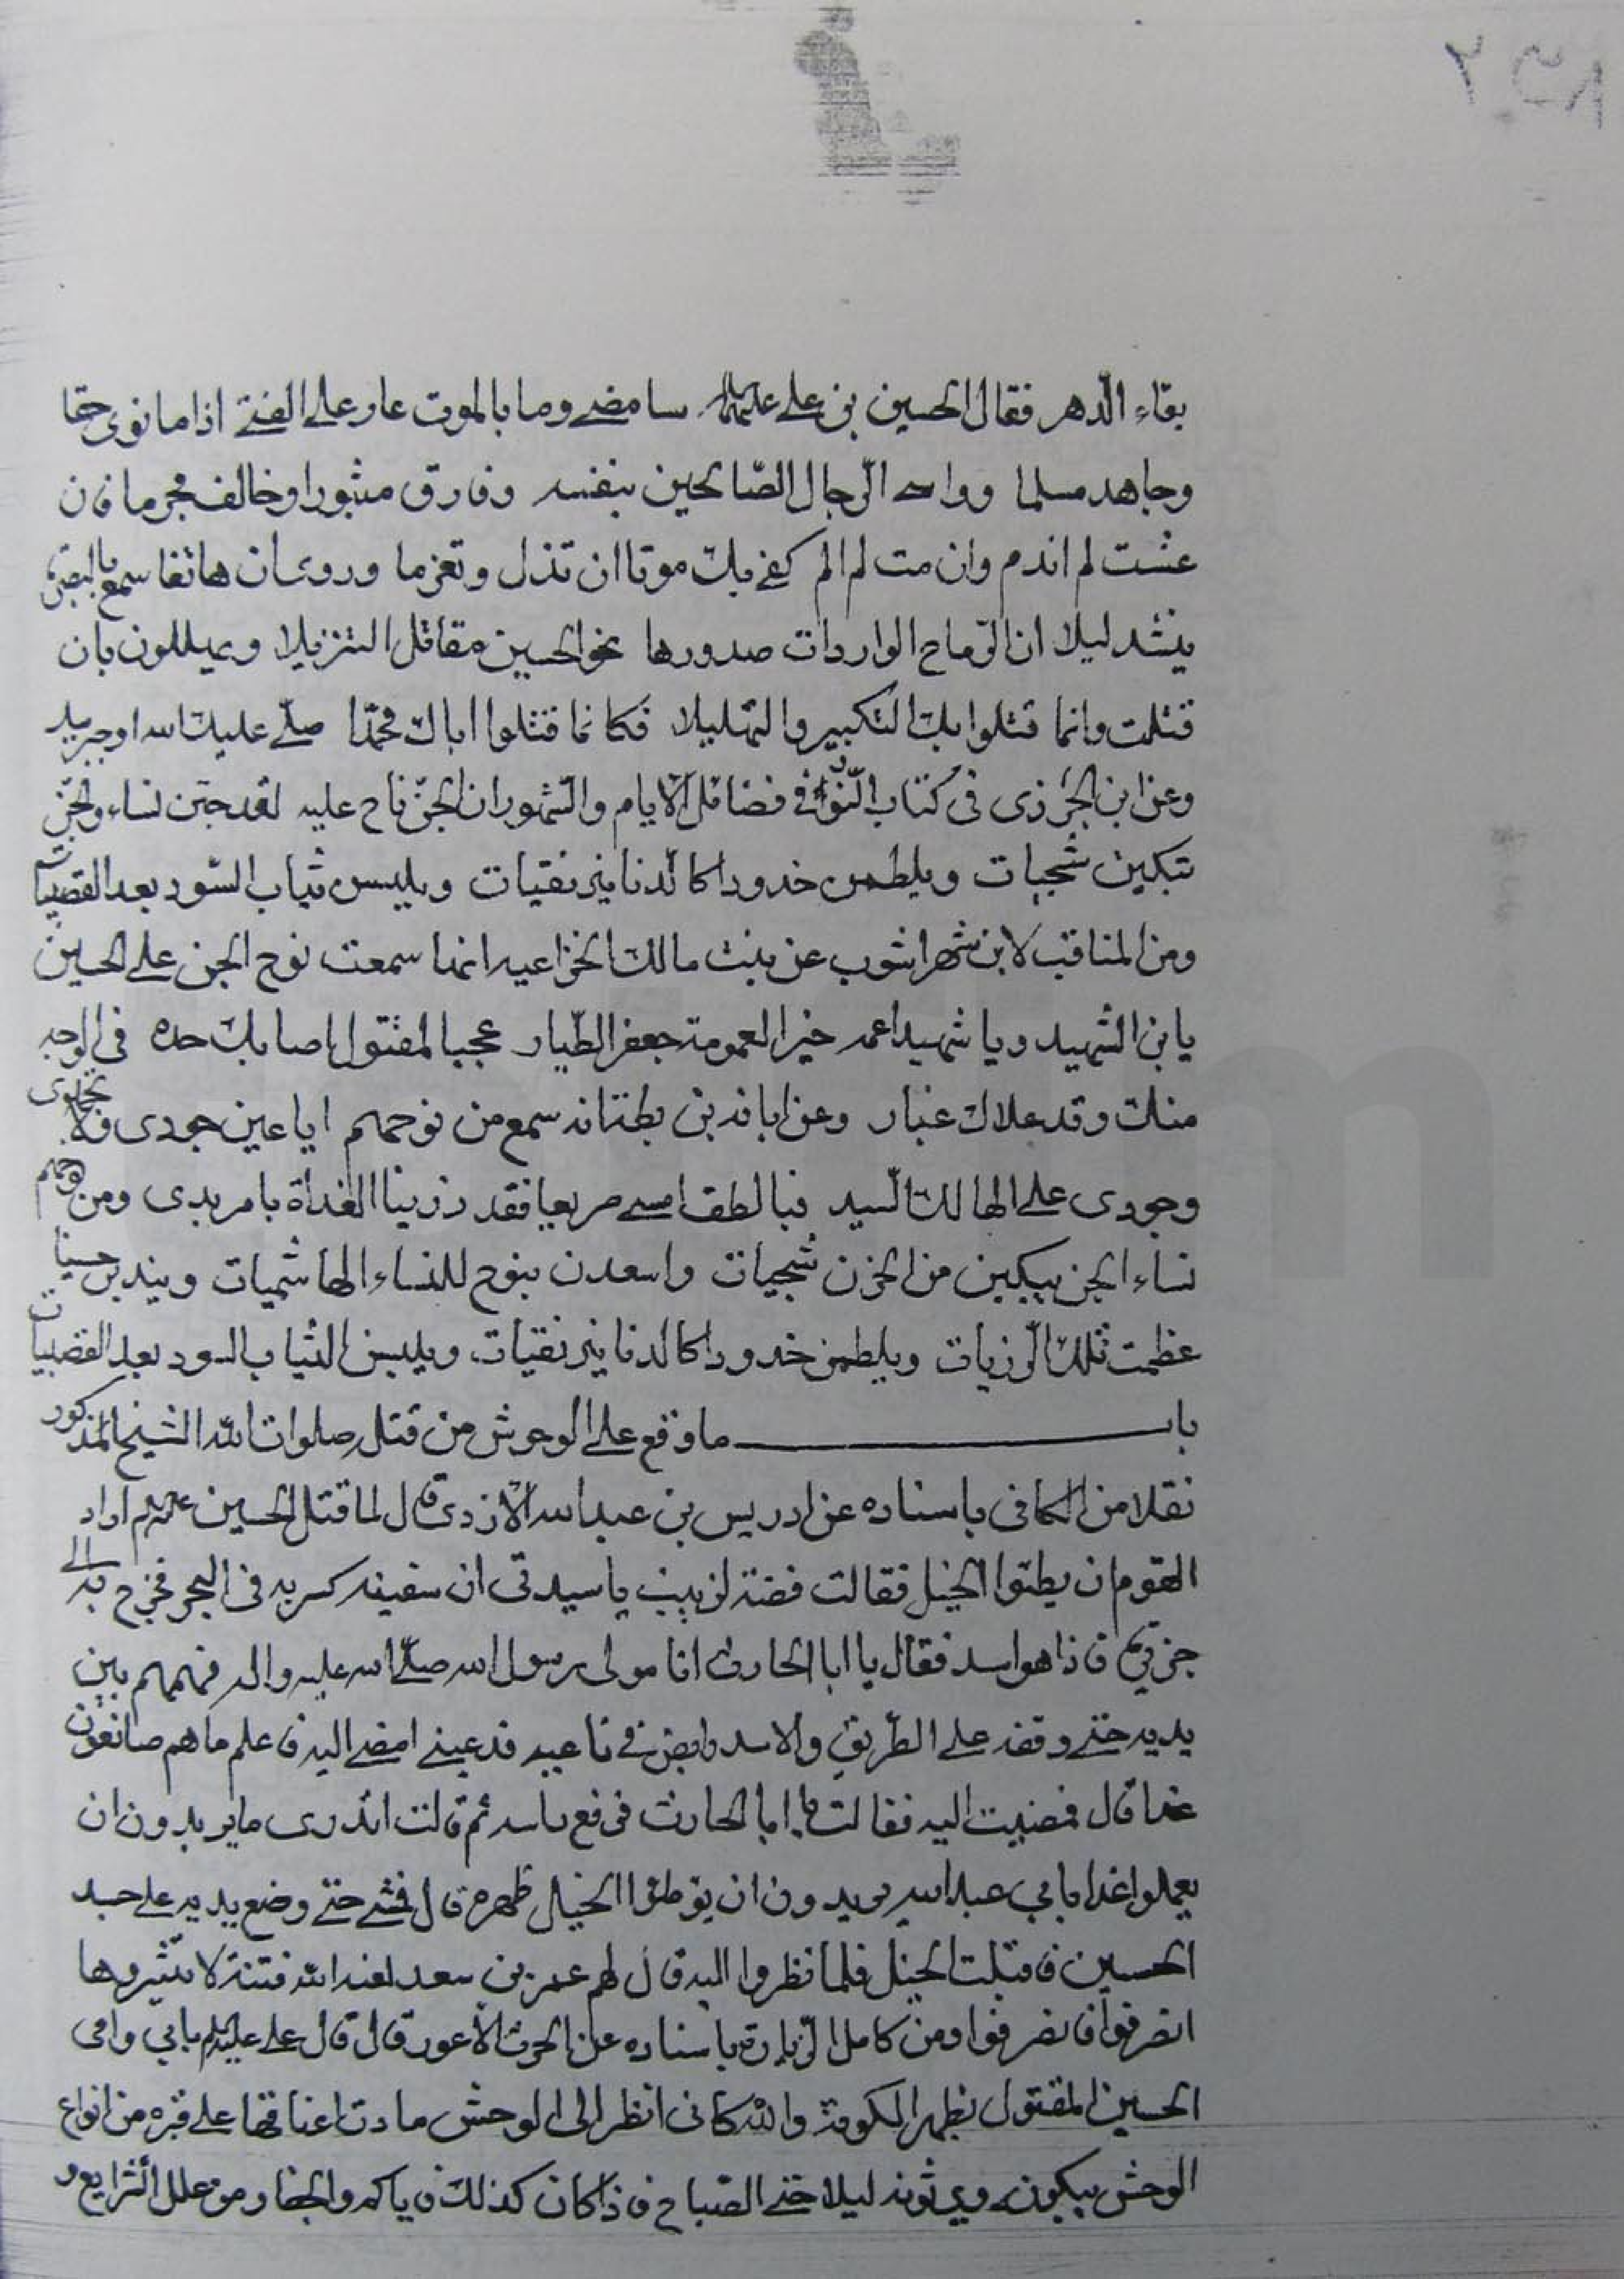 بقاء الدّهر فقال الحسين بن علي عليهما السلام سامضي وما بالموت عار علي الفتي اذا ما نوى حقا
وجاهد مسلما وواسى الرّجال الصّالحين بنفسه وفارق مثبورا وخالف مجرما فان
عشت لم اندم وان مت لم الم كفى بك موتا ان تذل وتغرما وروى ان هاتفا سمع بالبصرة
ينشد ليلا ان الرّماح الواردات صدورها نحو الحسين مقاتل التنزيلا ويهللون بان
قتلت وانما قتلوا بك التكبير والتهليلا فكانما قتلوا اباك محمّدا صلّى عليك الله او جبريل
وعن ابن الجوزى فى كتاب النّور فى فضائل الايام والشّهور ان الجنّ ناح عليه لقد جئن نساء الجنّ
تبكين شجيات ويلطمن خدودا كالدّنانير نقيات ويلبس ثياب السّود بعد القصبيات
ومن المناقب لابن شهراشوب عن بنت مالك الخزاعيه انها سمعت نوح الجن على الحسين
يا بن الشهيد ويا شهيدا عمه خير العمومة جعفر الطّيار عجبا لمقتول اصابك حده فى الوجه
منك وقد علاك غبار وعن ابانه بن بطة انه سمع من نوحهم ايا عين جودى ولا تجمدى
وجودى على الهالك السّيد فبالطف امسى صريعا فقد رزينا الغداة بامر بدى ومن نوحهم
نساء الجن يبكين من الحزن شجيات واسعدن بنوح للنساء الهاشميات ويندبن حسينا
عظمت تلك الرّزيات ويلطمن خدودا كالدنانير نقيات ويلبسن الثياب السود بعد القصبيات
باب ما وقع على الوحوش من قتله صلوات الله الشيخ المذكور
نقلا من الكافى باسناده عن ادريس بن عبد الله الازدى قال لما قتل الحسين عليه السلام اراد
القوم ان يطئوا الخيل فقالت فضة لزينب يا سيدتى ان سفينه كسر به فى البحر فخرج به الى
جزيرة فاذا هو اسد فقال يا ابا الحارث انا مولى رسول الله صلّى الله عليه واله فهمهم بين
يديه حتى وقفه على الطّريق والاسد رابض فى ناحيه فدعينى امضى اليه فاعلم ما هم صانعون
غدا قال فمضيت اليه فقالت يا ابا الحارث فرفع راسه ثم قالت اتدرى ما يريدون ان
يعملوا غدا بابي عبد الله يريدون ان يوطئوا الخيل ظهره قال فمشى حتى وضع يديه على جسد
الحسين فاقبلت الخيل فلما نظروا اليه قال لهم عمر بن سعد لعنه الله فتنة لا تثيروها
انصرفوا فانصرفوا ومن كامل الزّيارة باسناده عن الحرث الأعور قال قال علي عليه السلام بابي وامى
الحسين المقتول بظهر الكوفة والله كانى انظر الى الوحش مادت اعناقها على قبره من انواع
الوحش يبكونه ويرثونه ليلا حتى الصّباح فاذا كان كذلك فاياكم والجفا ومن علل الشرايع و